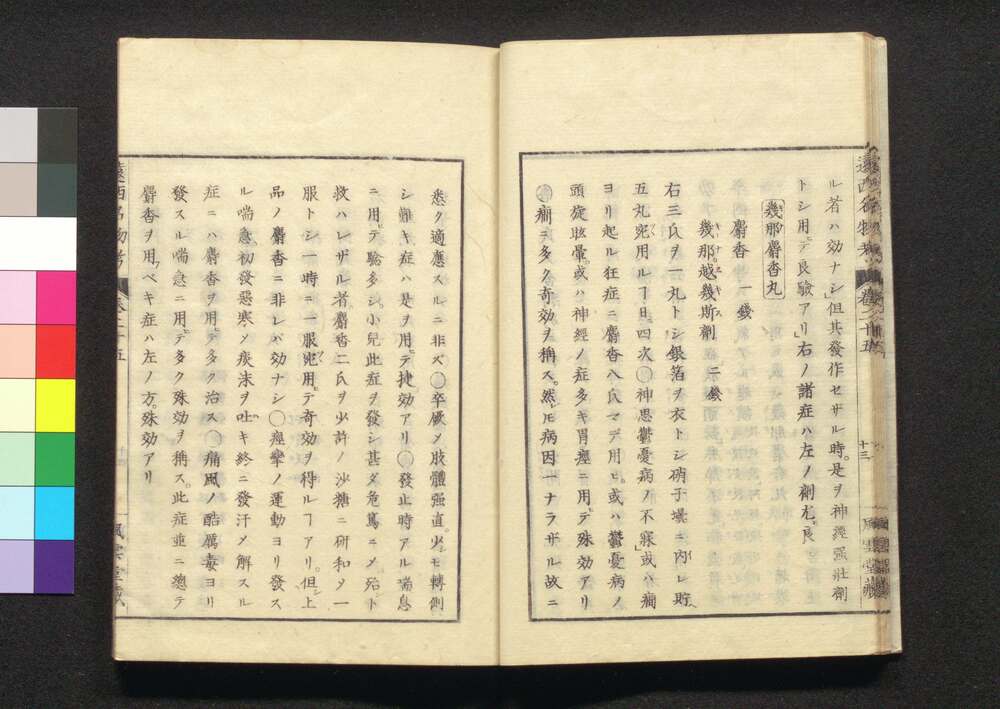 ル者ハ効ナシ」但其發作セザル時。是ヲ神經强壯劑
トシ用テ良驗アリ」右ノ諸症ハ左ノ劑尤良
幾那麝香丸
麝香 一錢
幾那越幾斯劑 二錢
右三氏ヲ一丸トシ銀箔ヲ衣トシ硝子壜ニ內レ貯
五丸宛用ルヿ日四次○神思鬱憂病ノ不寐或ハ癇
ヨリ起ル狂症ニ麝香八氏マデ用ヒ。或ハ鬱憂病ノ
頭旋眩暈。或ハ神經ノ症多キ胃痙ニ用テ殊効アリ
○癇ニ多ク奇効ヲ稱ス。然𪜈病因一ナラザル故ニ
遠西名物考
十三
風雲堂藏
悉ク適應スルニ非ズ○卒厥メ肢體强直。少モ轉側
シ難キ症ハ是ヲ用テ捷効アリ○發止時アル喘息
ニ用テ驗多シ。小兒此症ヲ發シ甚ダ危篤ニメ殆ト
救ハレザル者。麝香二氏ヲ少許ノ沙糖ニ研和メ一
服トシ一時ニ一服宛用テ奇効ヲ得ルヿアリ。但上
品ノ麝香ニ非レバ効ナシ○痙攣ノ運動ヨリ發ス
ル喘急。初發惡寒メ痰沫ヲ吐キ終ニ發汗メ解スル
症ニハ麝香ヲ用テ多ク治ス○痛風ノ酷厲毒ヨリ
發スル喘急ニ用テ多ク殊効ヲ稱ス。此症並ニ總テ
麝香ヲ用ベキ症ハ左ノ方。殊効アリ